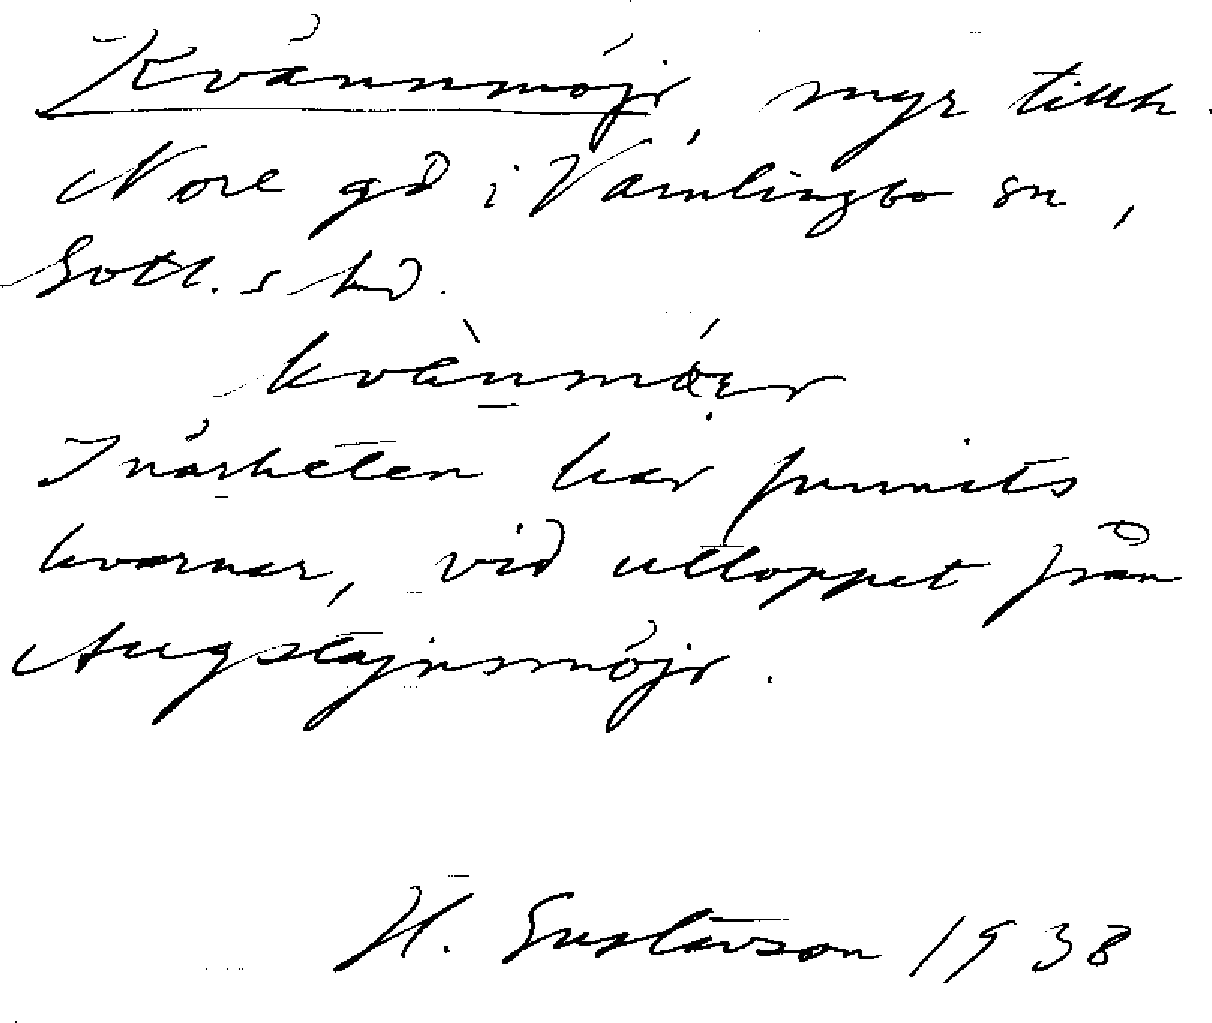 Kvännmöjr, myr tillh.
Nore gd i Vamlingbo sn,
Gotl. s hd.
I närheten har funnits
kvarnar, vid utloppet från
Augstäjnsmöjr.
H. Gustavson 1938